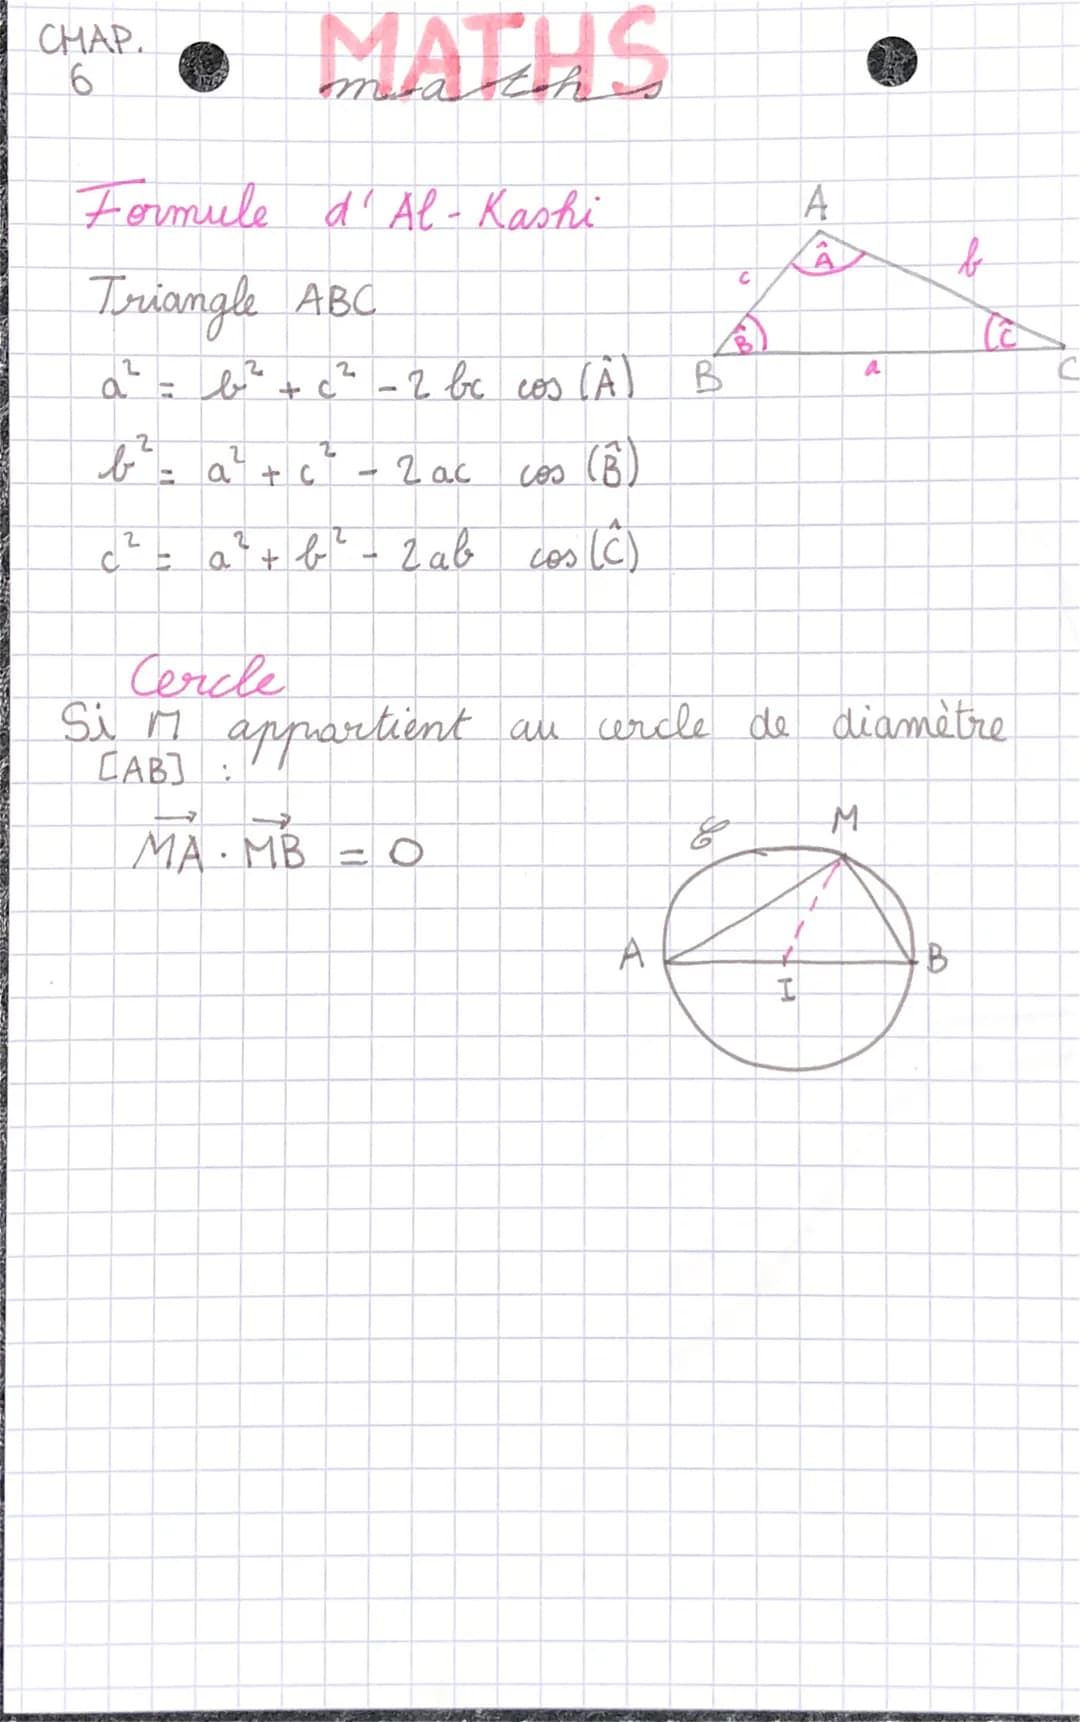 CHAP.
6
MATHS
maths
Formule d'Al-Kashi
A
Â
c
b
B̂
Ĉ
B
a
C
Triangle ABC
a² = b² + c² - 2 bc cos (Â)
b² = a² + c² - 2 ac cos (B̂)
c² = a² + b² - 2ab cos (Ĉ)
Cercle
Si M appartient au cercle de diamètre
[AB] :
M⃗A⃗ · M⃗B⃗ = 0
𝒞
M
A
B
I